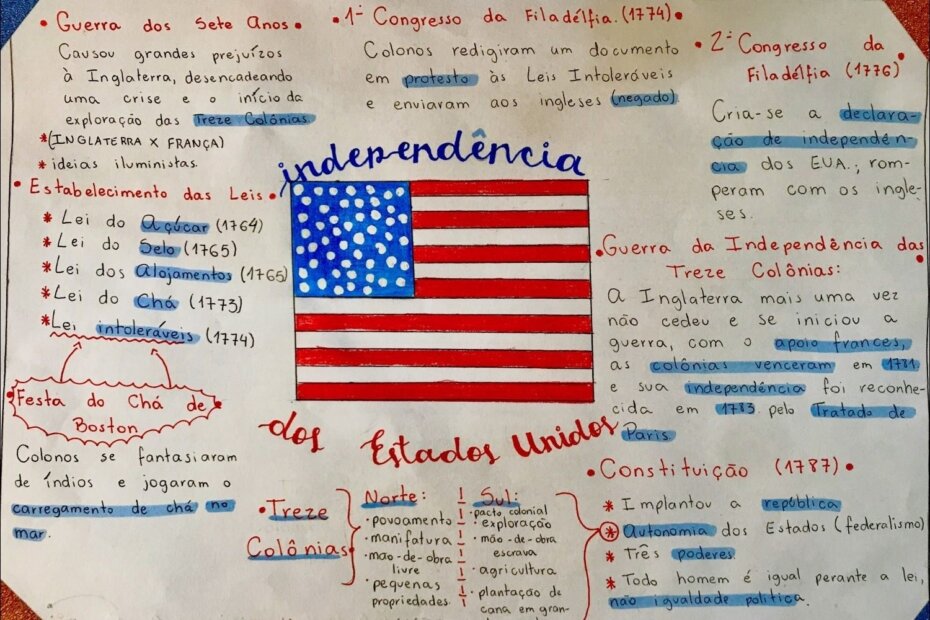 • Guerra dos Sete Anos •
Causou grandes prejuízos
à Inglaterra, desencadeando
uma crise e o início da
exploração das Treze Colônias
*(INGLATERRA X FRANÇA)
* ideias iluministas.
• Estabelecimento das Leis •
* Lei do Açúcar (1764)
* Lei do Selo (1765)
* Lei dos Alojamentos (1765)
* Lei do Chá (1773)
* Lei intoleráveis (1774)
Festa do Chá de
Boston
Colonos se fantasiaram
de índios e jogaram o
carregamento de chá no
mar.
• 1º Congresso da Filadélfia. (1774) •
Colonos redigiram um documento
em protesto às Leis Intoleráveis
e enviaram aos ingleses (negado)
independência
dos Estados Unidos
• Treze
Colônias
Norte:
• povoamento
• manifatura
• mão-de-obra
livre
• pequenas
propriedades.
Sul:
• pacto colonial
• exploração
• mão-de-obra
escrava
• agricultura
• plantação de
cana em gran-
• 2º Congresso da
Filadélfia (1776) •
Cria-se a declara-
ção de independên-
cia dos EUA.; rom-
peram com os ingle-
ses.
• Guerra da Independência das
Treze Colônias: •
A Inglaterra mais uma vez
não cedeu e se iniciou a
guerra, com o apoio frances,
as colônias venceram em 1781
e sua independência foi reconhe-
cida em 1783 pelo Tratado de
Paris.
• Constituição (1787) •
* Implantou a república
* Autonomia dos Estados (federalismo)
* Três poderes
* Todo homem é igual perante a lei,
não igualdade política.